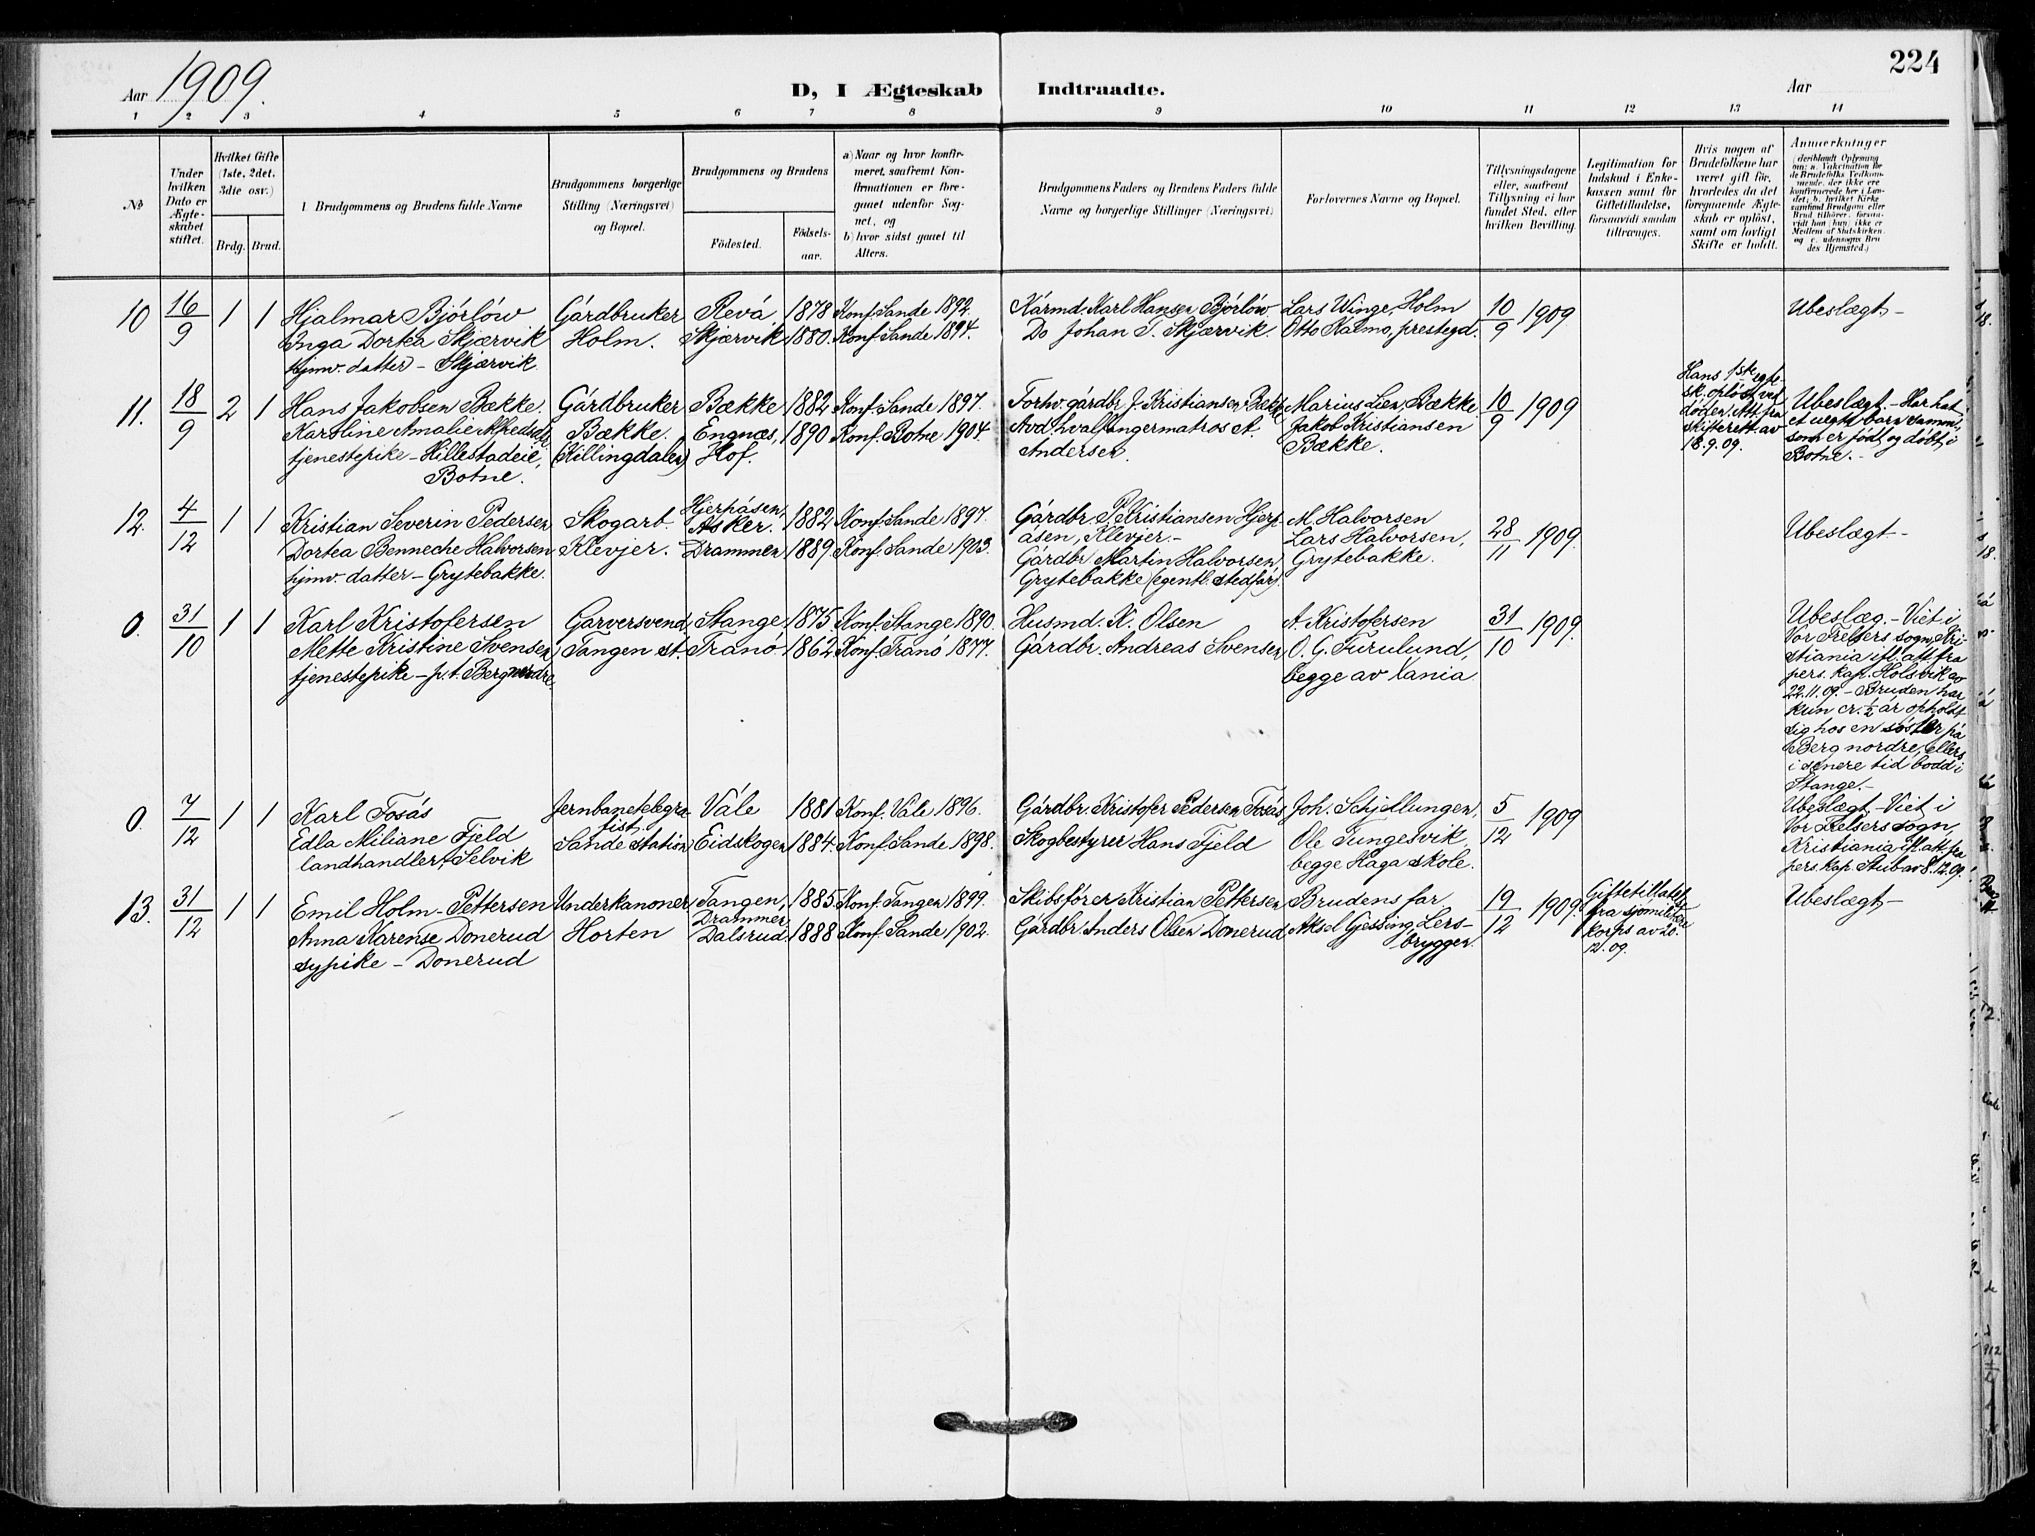 224
Aar 1909.
D, I Ægteskab Indtraadte.
Aar
1 2 3 4 5 6 7 8 9 10 11 12 13 14
No
Under hvilken Dato er Ægteskabet stiftet.
Hvilket Gifte (1ste, 2det, 3dte osv.)
Brdg. Brud.
Brudgommens og Brudens fulde Navne
Brudgommens borgerlige Stilling (Næringsvei) og Bopæl.
Brudgommens og Brudens
Fødested. Fødselsaar.
a) Naar og hvor konfirmeret, saafremt Konfirmationen er foregaaet udenfor Sognet, og
b) hvor sidst gaaet til Alters.
Brudgommens Faders og Brudens Faders fulde Navne og borgerlige Stillinger (Næringsvei)
Forlovernes Navne og Bopæl.
Tillysningsdagene eller, saafremt Tillysning ei har fundet Sted, efter hvilken Bevilling.
Legitimation for Indskud i Enkekassen samt for Giftetilladelse, forsaavidt saadan tiltrænges.
Hvis nogen af Brudefolkene har været gift før, hvorledes da det foregaaende Ægteskab er opløst, samt om lovligt Skifte er holdt.
Anmerkninger
10 16/9 1 1 Hjalmar Bjørløw Gårdbruker Revå 1878 Konf. Sande 1892. Kårmd. Karl Hansen Bjørløw Lars Winge, Holm 10/9 1909 Ubeslægt. –
Inga Dortea Skjærvik Holm. Skjærvik 1880. Konf. Sande 1894. Do Johan T. Skjærvik. Otto Kalmo, prestegd.
hjmv. datter – Skjærvik.
11. 18/9 2 1 Hans Jakobsen Bække. Gårdbruker Bække 1882 Konf. Sande 1897. Forhv. gårdbr. J. Kristiansen Bække Marius Lien, Bække 10/9 1909
Karoline Amalie Alfredsdtr. Bække. Engnæs, 1890 Konf. Botne 1904. Avd. hvalfangermatros A. Jakob Kristiansen
tjenestepike – Hillestadeie, (Killingdalen) Hof. Andersen. Bække.
Botne.
Hans 1ste egte-
sk. opløst ved
døden. Att. fra
skifterett. av
18.9.09.
Ubeslægt. – Har hat
et uegte barn samm.
som er født og døbt i
Botne. –
12. 4/12 1 1 Kristian Severin Pedersen Skogarb. Hjerpåsen, Asker. 1882 Konf. Sande 1897. Gårdbr. P. Kristiansen Hjerp- M. Halvorsen 28/11 1909. Ubeslægt –
Dortea Benneche Halvorsen Klevjer. Drammen 1889. Konf. Sande 1903. åsen, Klevjer. – Lars Halvorsen,
hjmv. datter – Grytebakke. Gårdbr. Martin Halvorsen, Grytebakke.
Grytebakke (egentl. stedfar).
0. 31/10 1 1 Karl Kristofersen Garversvend, Stange 1875 Konf. Stange 1890. Husmd. K. Olsen A. Kristofersen 31/10 1909.
Mette Kristine Svensen Tangen st. Tranø 1862 Konf. Tranø 1877. Gårdbr. Andreas Svensen O. G. Furulund,
tjenestepike – p.t. Berg nordre. begge av Xania
Ubeslæg. – Viet i
Vor Frelsers sogn, Kri-
stiania ifl. att. fra
pers. kap. Holsvik av
22.11.09. – Bruden har
kun cr. 1/2 år opholdt
sig hos en søster på
Berg nordre, ellers
i senere tid bodd i
Stange. –
0. 7/12 1 1 Karl Fosås Jernbanetelegra- Våle 1881 Konf. Våle 1896. Gårdbr. Kristofer Pedersen Fosås Joh. Schjellungen, 5/12 1909
fist
Edla Miliane Fjeld Sande station Eidskogen 1884. Konf. Sande 1898. Skogbestyrer Hans Fjeld Ole Tungesvik,
landhandler, Selvik begge Haga skole.
Ubeslægt – Viet i
Vor Frelsers sogn,
Kristiania ifl. att. fra
pers. kap. Stub av 8.12.09.
13. 31/12 1 1 Emil Holm-Pettersen Underkanoner Tangen, Drammen 1885 Konf. Tangen 1899. Skibsfører Kristian Pettersen Brudens far 19/12 1909. Ubeslægt –
Anna Karense Donerud Horten Dalsrud 1888 Konf. Sande 1902. Gårdbr. Anders Olsen Donerud Aksel Gjessing, Lers-
sypike – Donerud bryggen.
Giftetilladelse
fra sjømilitære
korps av 20.
12.09.